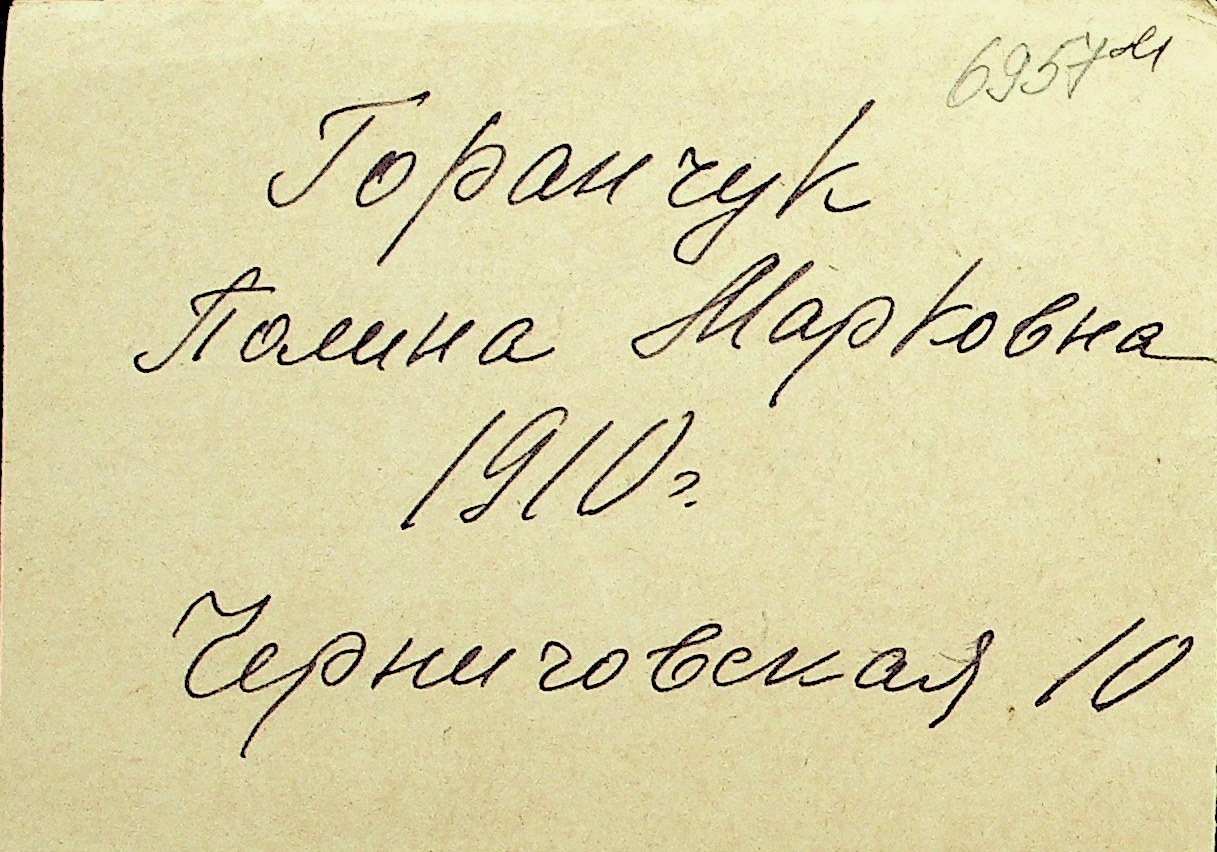 6957
Горанчук
Полина Марковна
1910г.
Черниговская 10